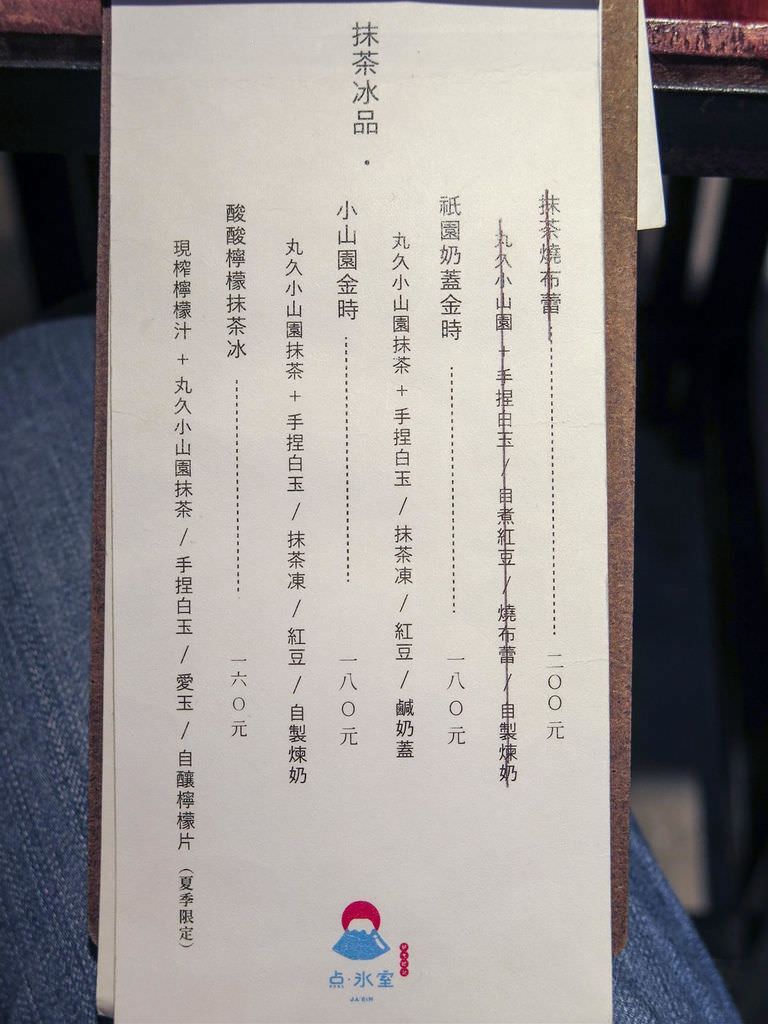 抹茶冰品・
抹茶燒布蕾 二〇〇元
丸久小山園 + 手捏白玉 / 自煮紅豆 / 燒布蕾 / 自製煉奶
祇園奶蓋金時 一八〇元
丸久小山園抹茶 + 手捏白玉 / 抹茶凍 / 紅豆 / 鹹奶蓋
小山園金時 一八〇元
丸久小山園抹茶 + 手捏白玉 / 抹茶凍 / 紅豆 / 自製煉奶
酸酸檸檬抹茶冰 一六〇元
現榨檸檬汁 + 丸久小山園抹茶 / 手捏白玉 / 愛玉 / 自釀檸檬片 (夏季限定)
点・氷室
JA'BIN